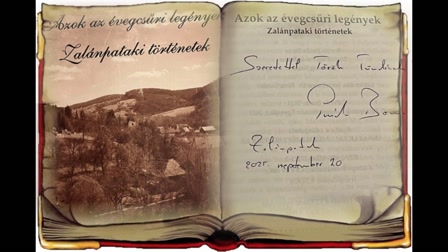 Azok az évegcsűri legények
Zalánpataki történetek
Azok az évegcsűri legények
Zalánpataki történetek
Szeretettel Török
Zalánpatak
2025. szeptember 20